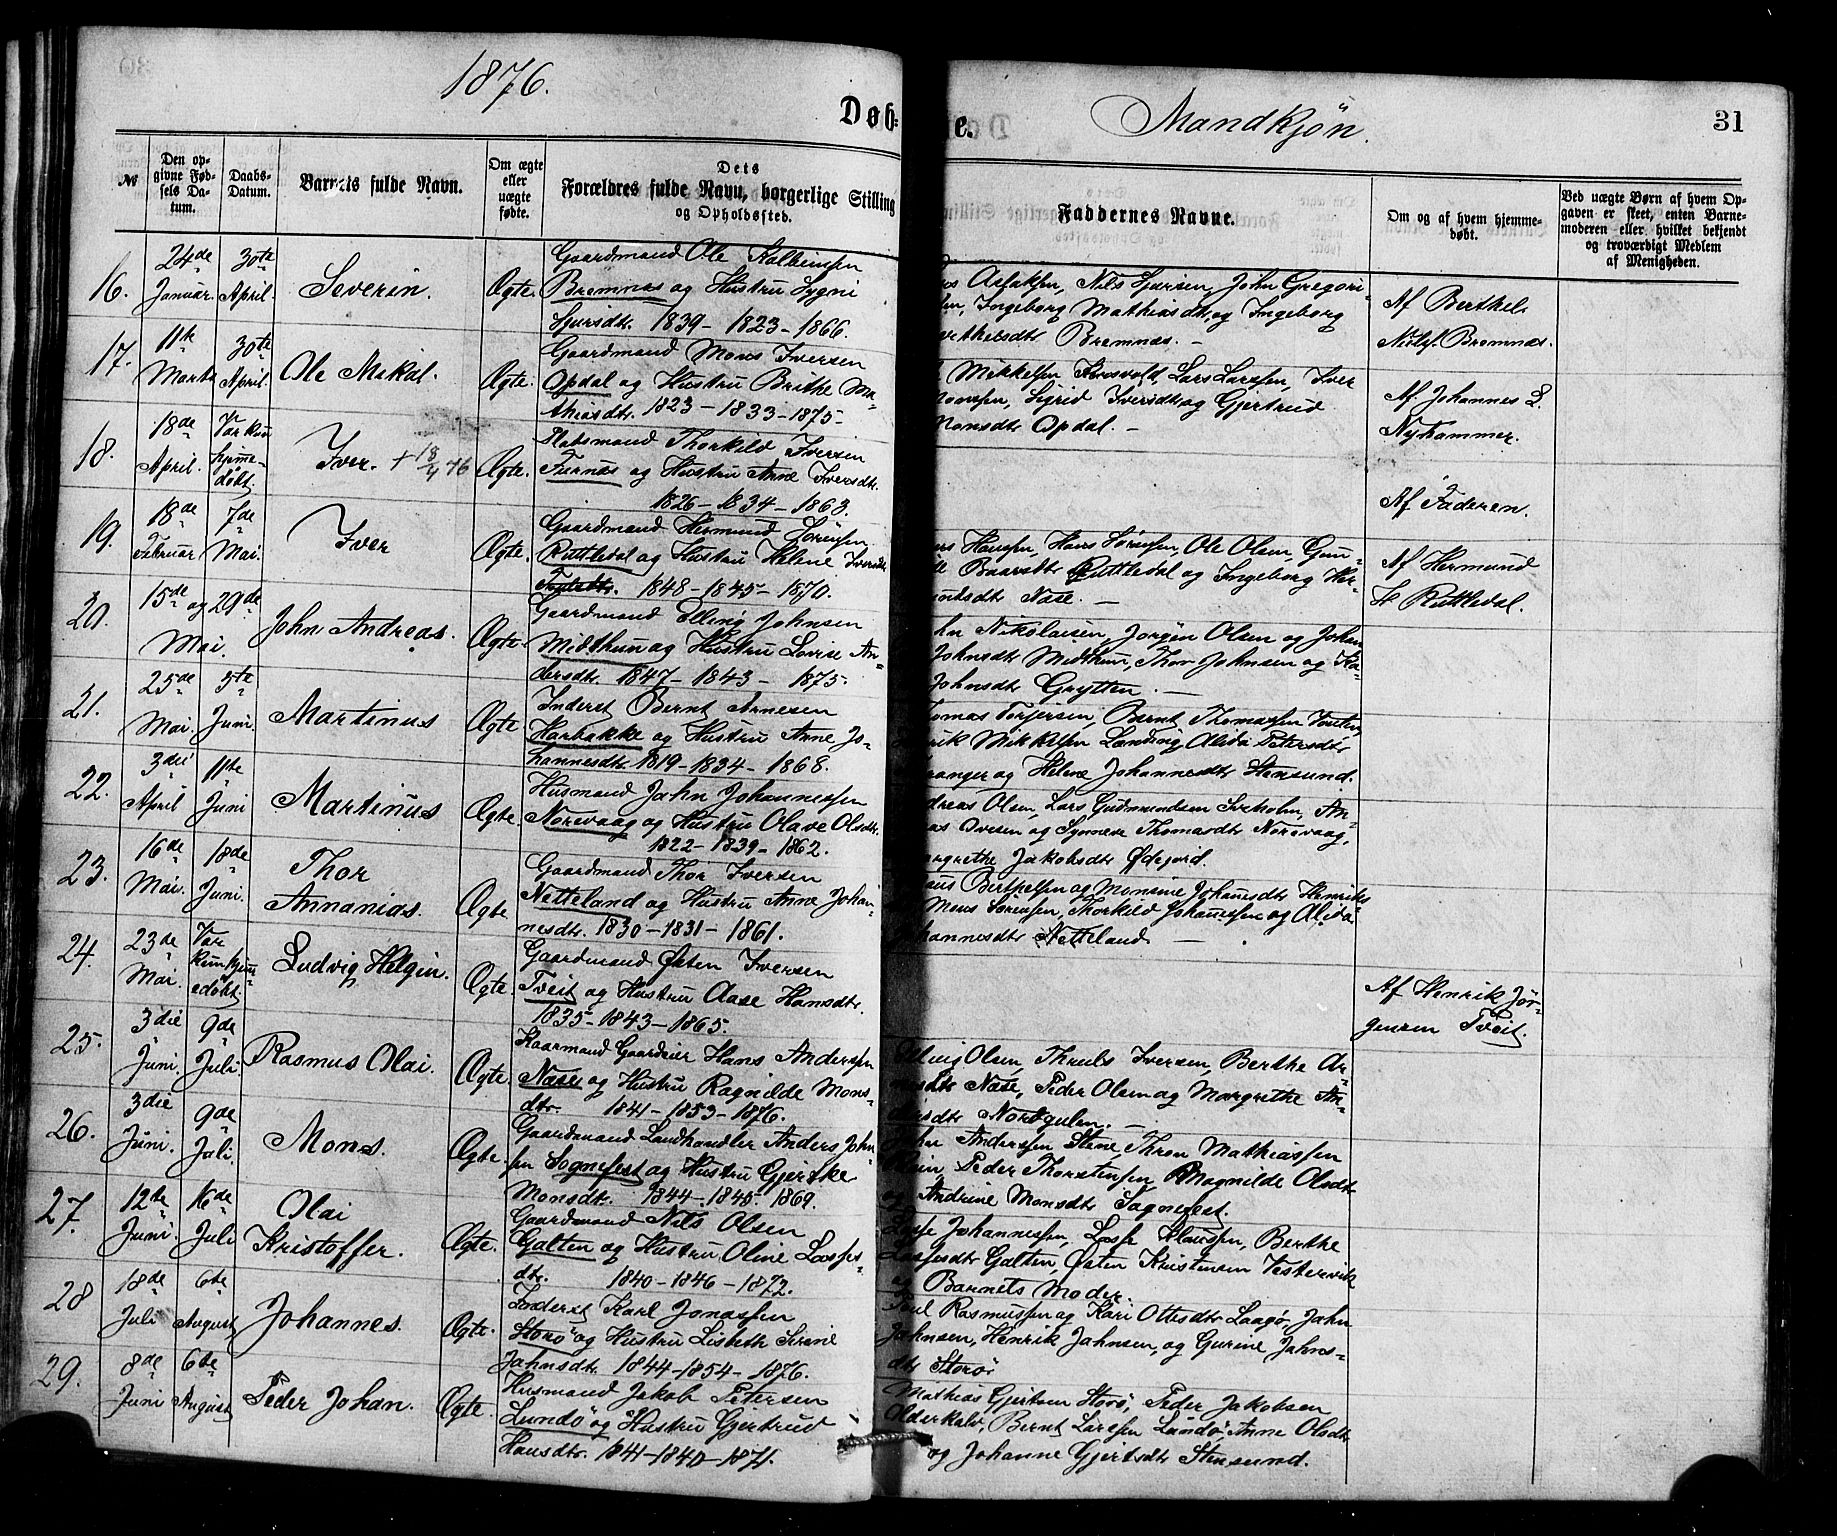 1876.
Døb-
e.
Mandkjøn.
31
№
Den opgivne Fødsels Datum.
Daabs-Datum.
Barnets fulde Navn.
Om ægte eller uægte fødte.
Dets Forældres fulde Navn, borgerlige Stilling og Opholdssted.
Faddernes Navne.
Om og af hvem hjemmedøbt.
Ved uægte Børn af hvem Opgaven er skeet, enten Barnemoderen eller hvilket bekjendt og troværdigt Medlem af Menigheden.
16. 24de Januar. 30te April. Severin. Ægte.
Gaardmand Ole Kolbeinsen
Bremnes og Hustru Sygni
Sjursdtr. 1839 - 1823 - 1866.
Nils Sjursen, John Gregori-
Ingeborg Mathiasdtr, og Ingeborg
Bremnæs. -
Af Berthel
Bremnæs.
17. 11te Marts 30te April. Ole Mikal. Ægte.
Gaardmand Mons Iversen
Opdal og Hustru Brithe Ma-
thiasdtr. 1823 - 1833 - 1875 -
Mikkelsen Lars Larssen, Iver
Monssen, Sigrid Iversdtr og Gjertrud
Monsdtr Opdal. -
Af Johannes L.
Nyhammer.
18. 18de April. Var kun hjemmedøbt. Iver. + 18/4 76 Ægte.
Pladsmand Thorkild Iversen
Furnæs og Hustru Anne Iversdtr.
1826 - 1834 - 1863.
Af Faderen.
19. 18de Februar 7de Mai. Iver Ægte.
Gaardmand Hermund Sørensen
Ruttledal og Hustru Helene Iversdtr
1848 - 1845 - 1870.
Hanssen, Hans Sørensen, Ole Olsen, Gun-
Baarsdtr Ruttledal og Ingeborg Her-
mundsdtr Nase. -
Af Hermund
Ruttledal.
20. 15de og 29de Mai. John Andreas. Ægte.
Gaardmand Elling Johnsen
Midthun og Hustru Lovise An-
dersdtr. 1847 - 1843 - 1875.
Nikolaisen, Jørgen Olsen og Johan
Johnsdtr Midthun, Thor Johnsen og Ka-
Johnsdtr Grytten. -
21. 25de Mai. 5te Juni. Martinus Ægte
Inderst Bernt Arnesen
Harbakke og Hustru Anne Jo-
hannesdtr. 1819 - 1834 - 1868.
Tomas Torjersen, Bernt Thomassen
Mikkelsen Landing, Alida Petersdtr
og Helene Johannesdtr Stensund.
22. 3die April 11te Juni Martinus Ægte.
Husmand Jahn Johannessen
Norevaag og Hustru Olave Olsdtr.
1822 - 1839 - 1862.
Olsen, Lars Gudmundsen Sveholm, An-
Iversen og Synneve Thomasdtr Norevaag,
Margrethe Jakobsdtr Ødejord.
23. 16de Mai. 18de Juni. Thor Annanias. Ægte
Gaardmand Thor Iversen
Netteland og Hustru Anne Johan-
nesdtr. 1830 - 1831 - 1861.
Berthelsen og Monsine Johansdtr Henriks
Mons Sørensen, Thorkild Johannessen og Alida
Johannesdtr Netteland -
24. 23de Mai. Var kun hjemmedøbt. Ludvig Helgin. Ægte.
Gaardmand Østen Iversen
Tveit og Hustru Aase Hansdtr.
1835 - 1843 - 1865.
Af Henrik Jør-
gensen Tveit.
25. 3die Juni. 9de Juli. Rasmus Olai. Ægte.
Kaarmand Gaardeier Hans Anderssen
Nase og Hustru Ragnilde Mons-
dtr. 1841 - 1853 - 1876.
Olsen, Thruls Iversen, Berthe Ar-
Nase, Peder Olsen og Margrethe An-
dersdtr Nordgulen. -
26. 3die Juni. 9de Juli. Mons. Ægte.
Gaardmand Landhandler Anders John-
sen Sognefest og Hustru Gjertke
Monsdtr. 1844 - 1845 - 1869.
John Anderssen Stene, Thron Mathiassen
Peder Thorstensen Magnilde Olsdtr
og Andrine Monsdtr Sognefest.
27. 12te Juni 16de Juli Olai Kristoffer. Ægte.
Gaardmand Nils Olsen
Galten og Hustru Oline Lasses-
dtr. 1840 - 1846 - 1872.
Lasse Johannessen, Lasse Klaussen, Berthe
Lassesdtr Galten, Østen Kristensen Vestervik
og Barnets Moder.
28 18de Juli 6te August Johannes. Ægte.
Inderst Karl Jonassen
Storø og Hustru Lisbeth Serine
Jahnsdtr. 1844 - 1854 - 1876.
Poul Rasmussen og Kari Ottesdtr Laagø, Jahn
Jahnsen, Henrik Jahnsen, og Gurine Jahns-
dtr Storø
29. 8de Juni 6te August Peder Johan. Ægte.
Husmand Jakob Petersen
Lundø og Hustru Gjertrud
Hansdtr. 1841 - 1840 - 1871.
Mathias Gjertsen Storø, Peder Jakobsen
Bernt Larssen Lundø, Anne Olsdtr
og Johanne Gjertsdtr Stensund.